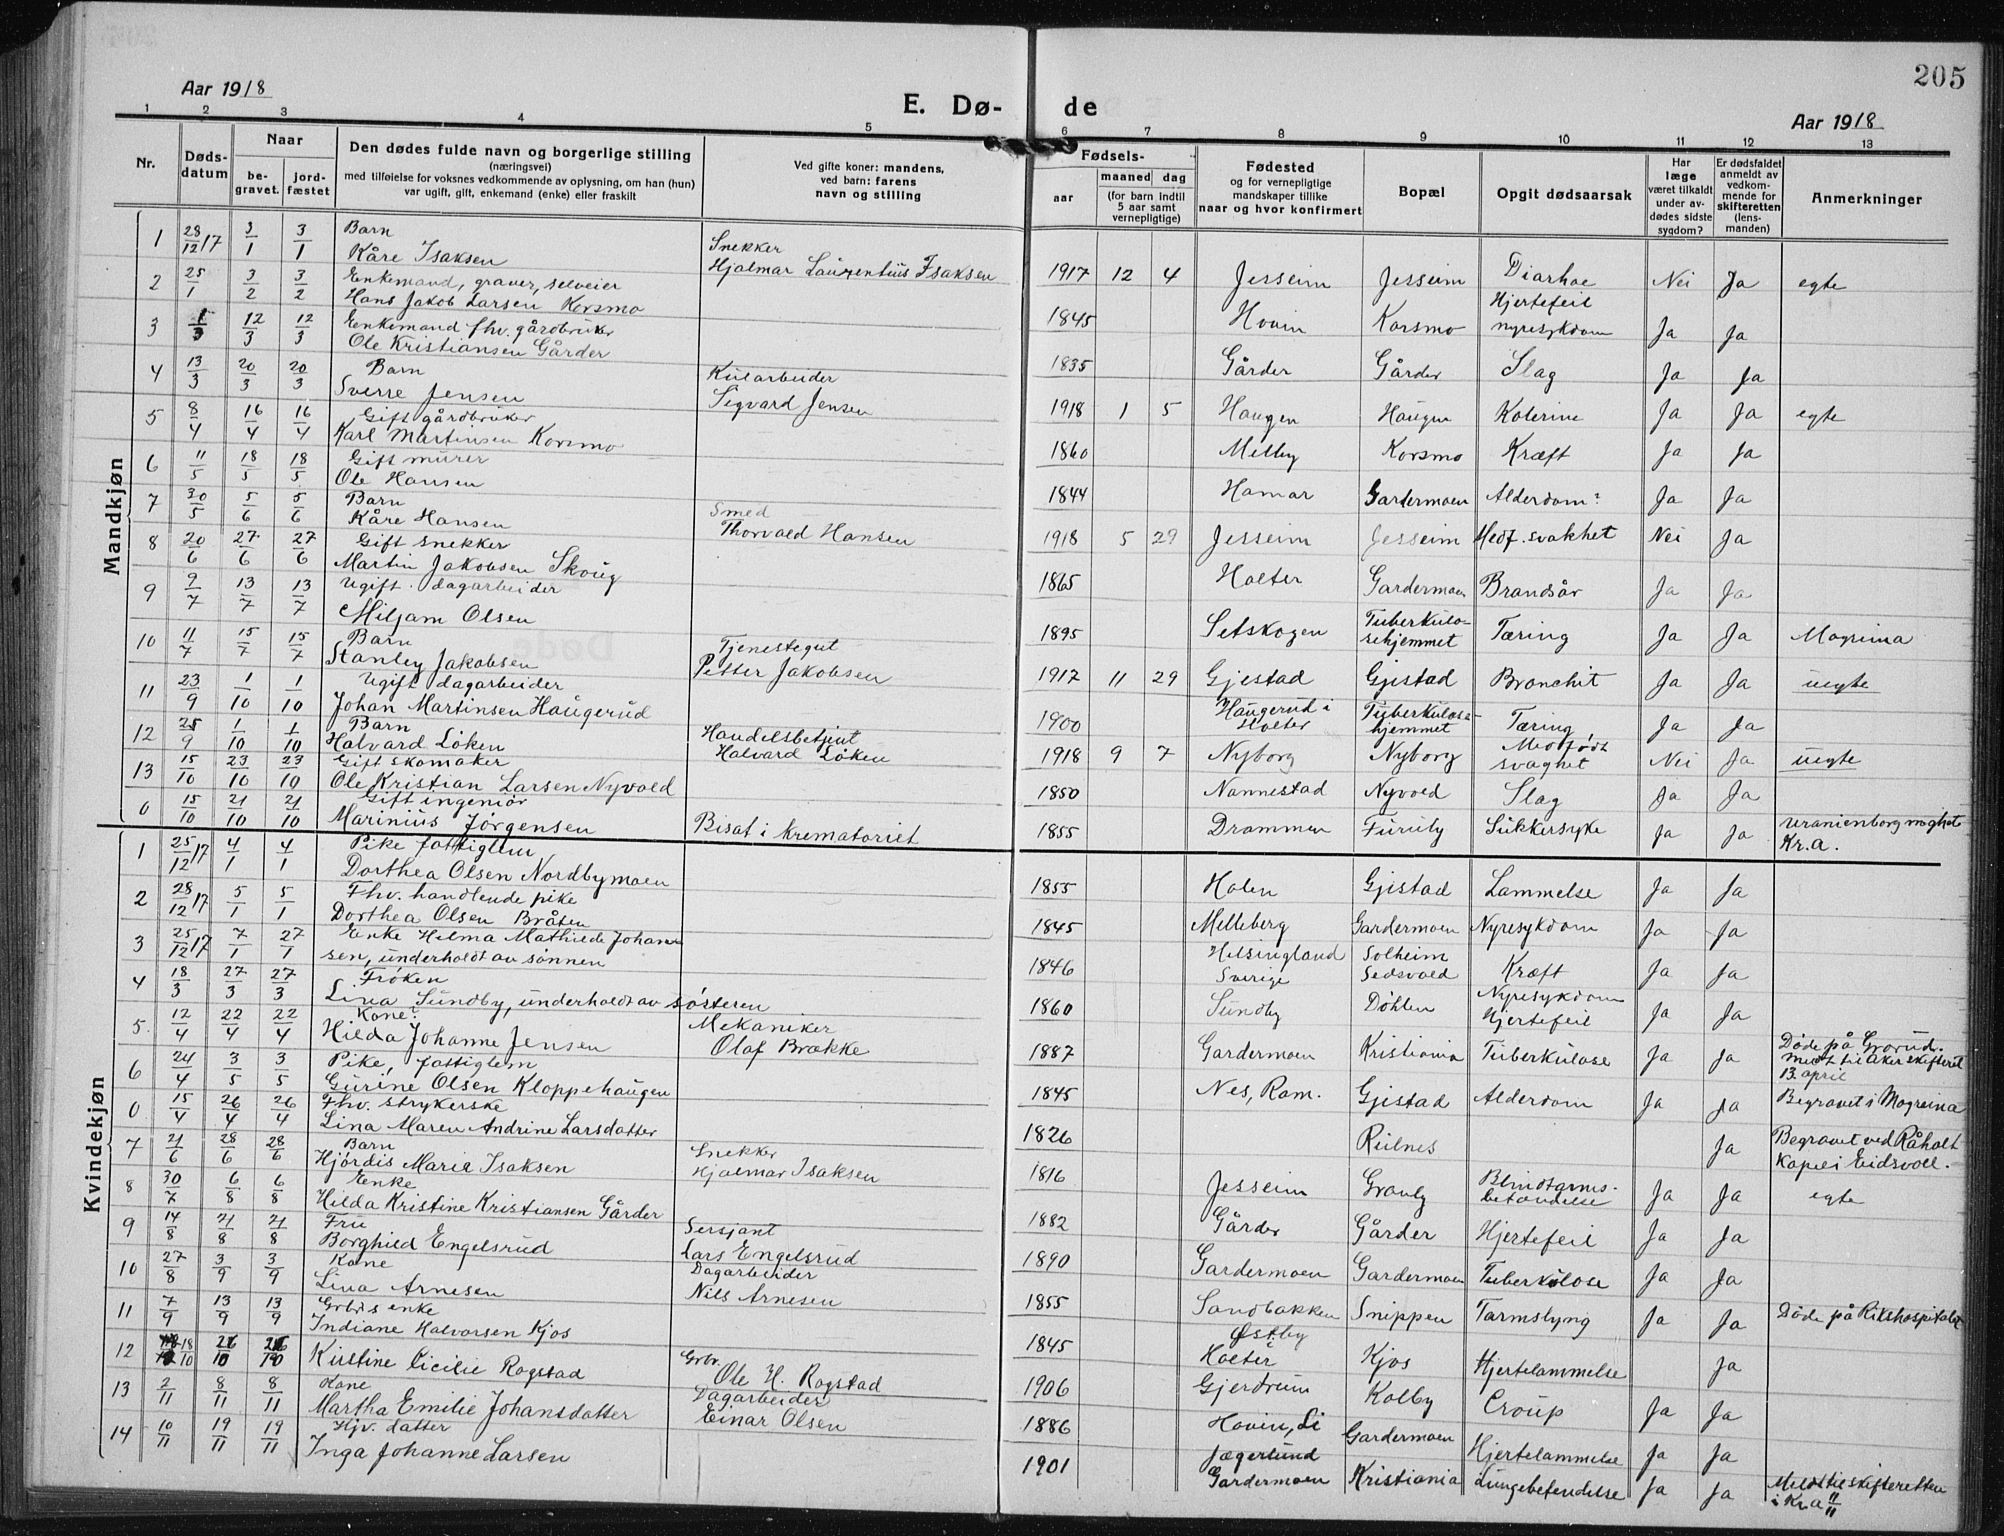 205
Aar 1918
E. Dø- de
Aar 1918
1 2 3 4 5 6 7 8 9 10 11 12 13
Nr.
Døds-datum
Naar
be-gravet.
jord-fæstet
Den dødes fulde navn og borgerlige stilling
(næringsvei)
med tilføielse for voksnes vedkommende av oplysning, om han (hun)
var ugift, gift, enkemand (enke) eller fraskilt
Ved gifte koner: mandens,
ved barn: farens
navn og stilling
Fødsels-
aar
maaned dag
(for barn indtil
5 aar samt
vernepligtige)
Fødested
og for vernepligtige
mandskaper tillike
naar og hvor konfirmert
Bopæl
Opgit dødsaarsak
Har
læge
været tilkaldt
under av-
dødes sidste
sygdom?
Er dødsfaldet
anmeldt av
vedkom-
mende for
skifteretten
(lens-
manden)
Anmerkninger
Mandkjøn
1 28/12 17 3/1 3/1 Barn Kåre Isaksen Snekker Hjalmar Laurentius Isaksen 1917 12 4 Jesseim Jesseim Diarhoe Nei Ja egte
2 25/1 3/2 3/2 Enkemand, graver, selveier Hans Jakob Larsen Korsmo 1845 Hovin Korsmo Hjertefeil nyresykdom Ja Ja
3 1/3 12/3 12/3 Enkemand fhv. gårdbruker Ole Kristiansen Gårder 1835 Gårder Gårder Slag Ja Ja
4 13/3 20/3 20/3 Barn Sverre Jensen Kularbeider Sigvard Jensen 1918 1 5 Haugen Haugen Kolerine Ja Ja egte
5 8/4 16/4 16/4 Gift gårdbruker Karl Martinsen Korsmo 1860 Melby Korsmo Kræft Ja Ja
6 11/5 18/5 18/5 Gift murer Ole Hansen 1844 Hamar Gardermoen Alderdom? Ja Ja
7 30/5 5/6 5/6 Barn Kåre Hansen Smed Thorvald Hansen 1918 5 29 Jesseim Jesseim Medf. svakhet Nei Ja
8 20/6 27/6 27/6 Gift snekker Martin Jakobsen Skoug 1865 Holter Gardermoen Brandsår Ja Ja
9 9/7 13/7 13/7 Ugift. dagarbeider Miljam Olsen 1895 Setskogen Tuberkulo-sehjemmet Tæring Ja Ja Mogreina
10 11/7 15/7 15/7 Barn Stanley Jakobsen Tjenestegut Petter Jakobsen 1917 11 29 Gjestad Gjistad Bronchit Ja Ja uegte
11 23/9 1/10 1/10 Ugift dagarbeider Johan Martinsen Haugerud 1900 Haugerud i Holter Tuberkulose-hjemmet Tæring Ja Ja
12 25/9 1/10 1/10 Barn Halvard Löken Handelsbetjent Halvard Löken 1918 9 7 Nyborg Nyborg Medfødt svaghet Nei Ja uegte
13 15/10 23/10 23/10 Gift skomaker Ole Kristian Larsen Nyvold 1850 Nannestad Nyvold Slag Ja Ja
0 15/10 21/10 21/10 Gift ingeniør Marinius Jørgensen Bisat i krematoriet 1855 Drammen Furuly Sukkersyke Ja Ja Uranienborg Kr.a.
Kvindekjøn
1 25/12 17 4/1 4/1 Pike fattiglem Dorthea Olsen Nordbymoen 1855 Holen Gjistad Lammelse Ja Ja
2 28/12 17 5/1 5/1 Fhv. handlende pike Dorthea Olsen Bråten 1845 Melleberg Gardermoen Nyresykdom Ja Ja
3 25/12 17 7/1 27/1 Enke Hilma Mathilde Johan-sen, underholdt av sønnen 1846 Helsingland Sverige Solheim Sedsvold Kræft Ja Ja
4 18/3 27/3 27/3 Frøken Lina Sundby, underholdt av søsteren 1860 Sundby Døhlen Nyresykdom Hjertefeil Ja Ja
5 12/4 22/4 22/4 Kone? Hilda Johanne Jensen Mekaniker Olaf Brække 1887 Gardermoen Kristiania Tuberkulose Ja Ja Døde på Grorud. Meldt til Aker skifteret 13. april
6 24/4 3/5 3/5 Pike, fattiglem Gurine Olsen Kloppehaugen 1845 Nes, Rom. Gjistad Alderdom Ja Ja Begravet i Mogreina
0 15/4 26/4 26/4 Fhv. strykerske Lina Maren Andrine Larsdatter 1826 Rulnes Ja Begravet ved Råholt Kapel i Eidsvoll.
7 21/6 28/6 28/6 Barn Hjördis Marie Isaksen Snekker Hjalmar Isaksen 1816 Jesseim Granly Blindtarms-betændelse Ja Ja egte
8 30/7 6/8 6/8 Enke Hilda Kristine Kristiansen Gårder 1882 Gårder Gårder Hjertefeil Ja Ja
9 14/8 21/8 21/8 Fru Borghild Engelsrud Sersjant Lars Engelsrud 1890 Gardermoen Gardermoen Tuberkulose Ja Ja
10 27/8 3/9 3/9 Kone Lina Arnesen Dagarbeider Nils Arnesen 1855 Sandbakken Snippen Tarmslyng Ja Ja Døde på Rikshospitalet
11 7/9 13/9 13/9 Grbr's enke Indiane Halvorsen Kjos 1845 Østby Holter Kjos Hjertelammelse Ja
12 18/10 26/10 26/10 Kirstine Cicilie Rogstad Grbr. Ole H. Rogstad 1906 Gjerdrum Kolby Croup Ja Ja
13 2/11 8/11 8/11 Kone Martha Emilie Johansdatter Dagarbeider Einar Olsen 1886 Hovin, Li Gardermoen Hjertelammelse Ja Ja
14 10/11 19/11 19/11 Hjv. datter Inga Johanne Larsen 1901 Jægerlund Gardermoen Kristiania Lungebetendelse Ja Ja Meldt til skifteretten i Kr.a 11/11